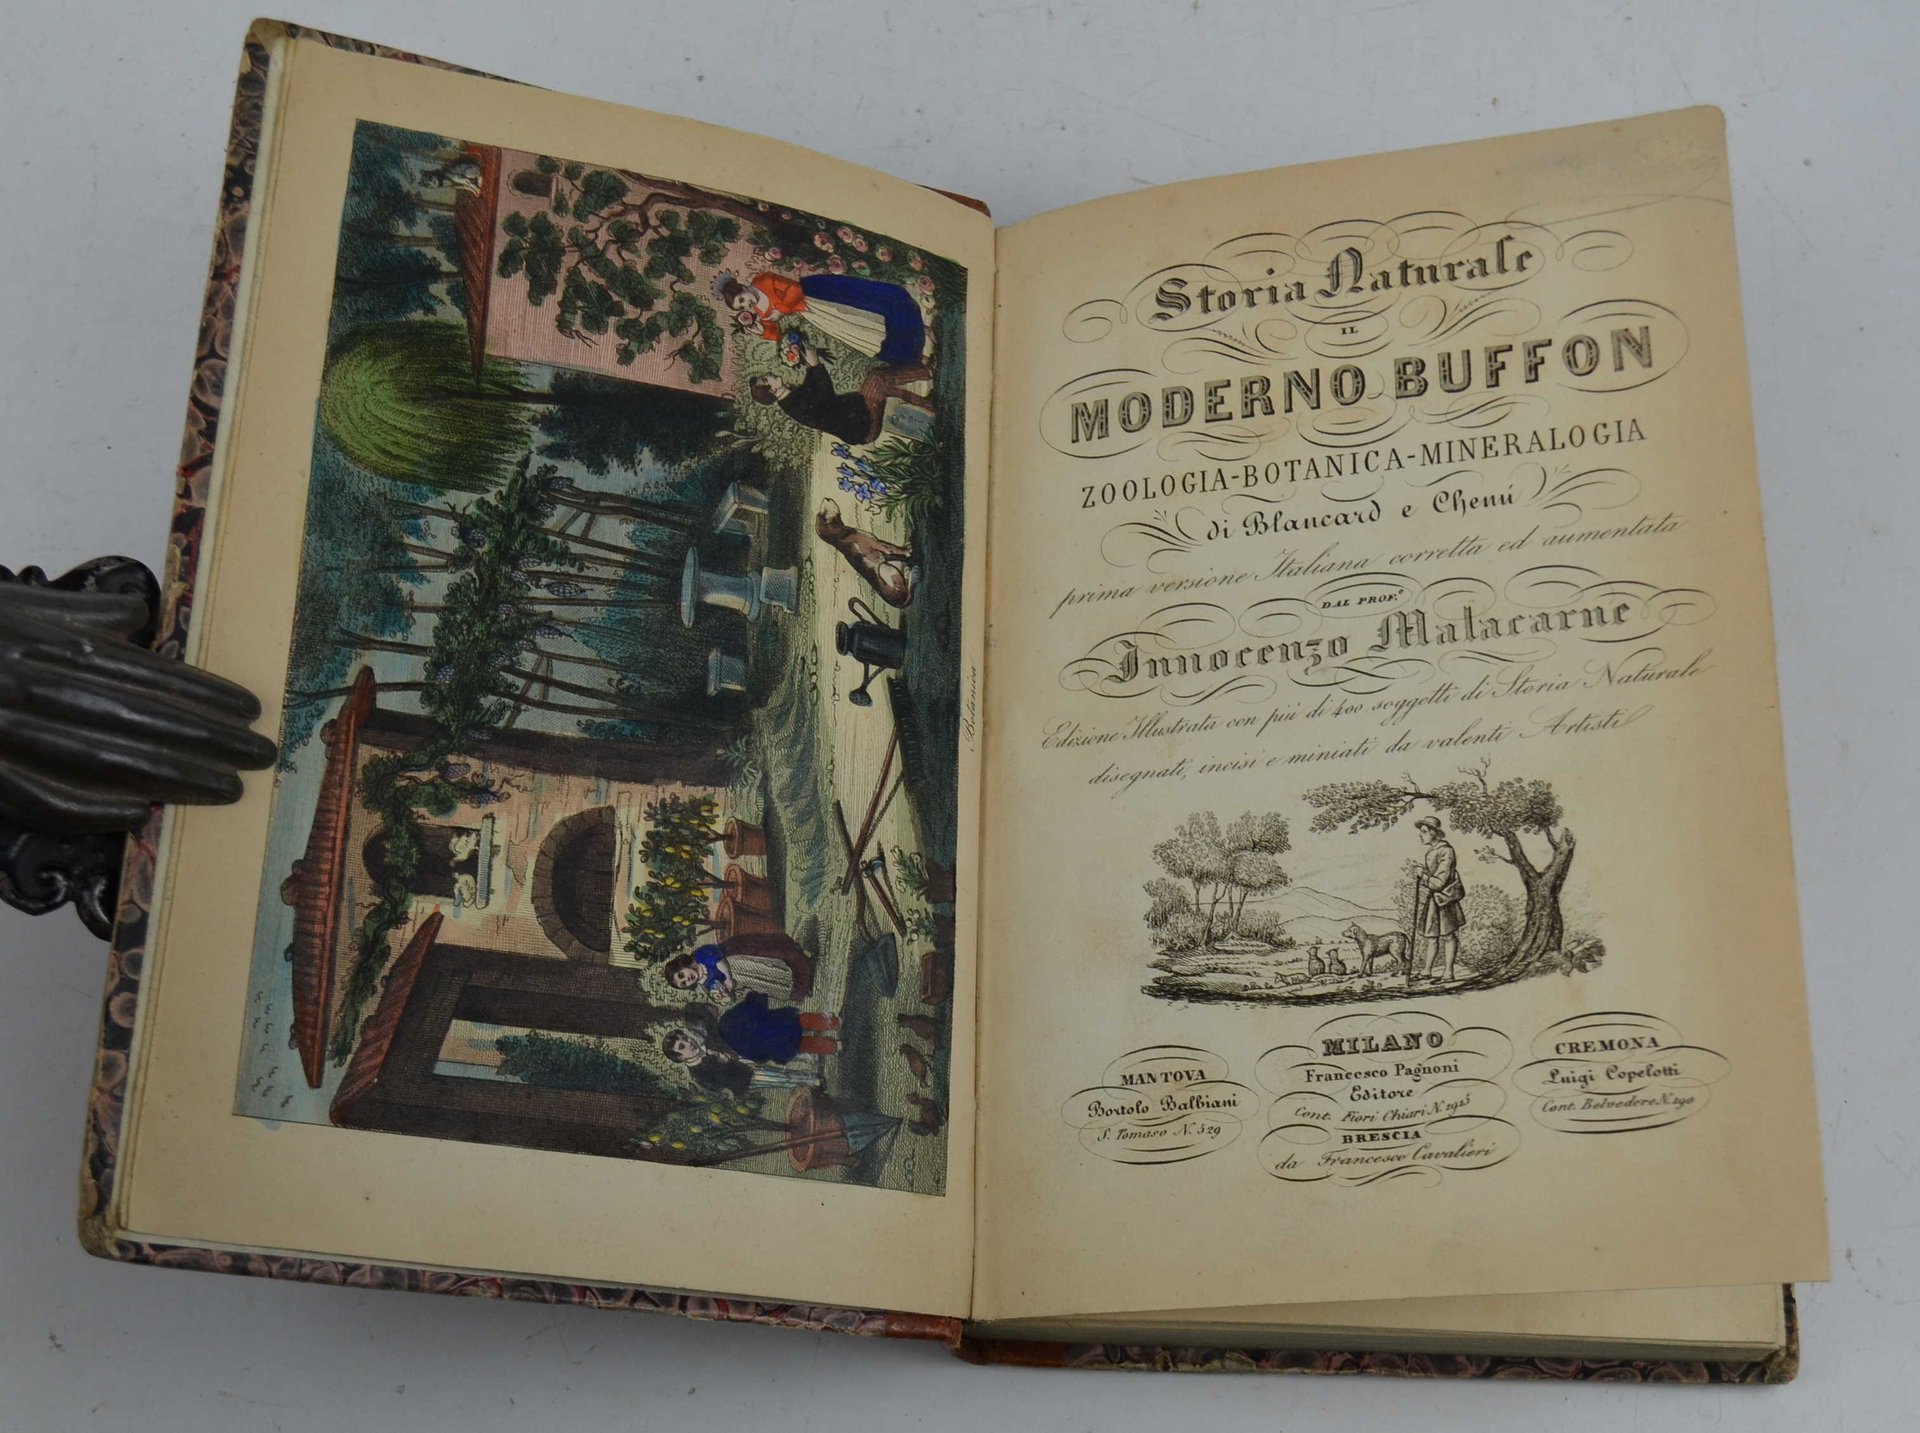 Botanica
Storia Naturale
IL
MODERNO BUFFON
ZOOLOGIA-BOTANICA-MINERALOGIA
di Blancard e Chenú
prima versione Italiana corretta ed aumentata
DAL PROF.e
Innocenzo Malacarne
Edizione Illustrata con più di 400 soggetti di Storia Naturale
disegnati, incisi e miniati da valenti Artisti
MANTOVA
Bortolo Balbiani
S. Tomaso N. 529
MILANO
Francesco Pagnoni
Editore
Cont. Fiori Chiari N. 1915
BRESCIA
da Francesco Cavalieri
CREMONA
Luigi Copelotti
Cont. Belvedere N. 190